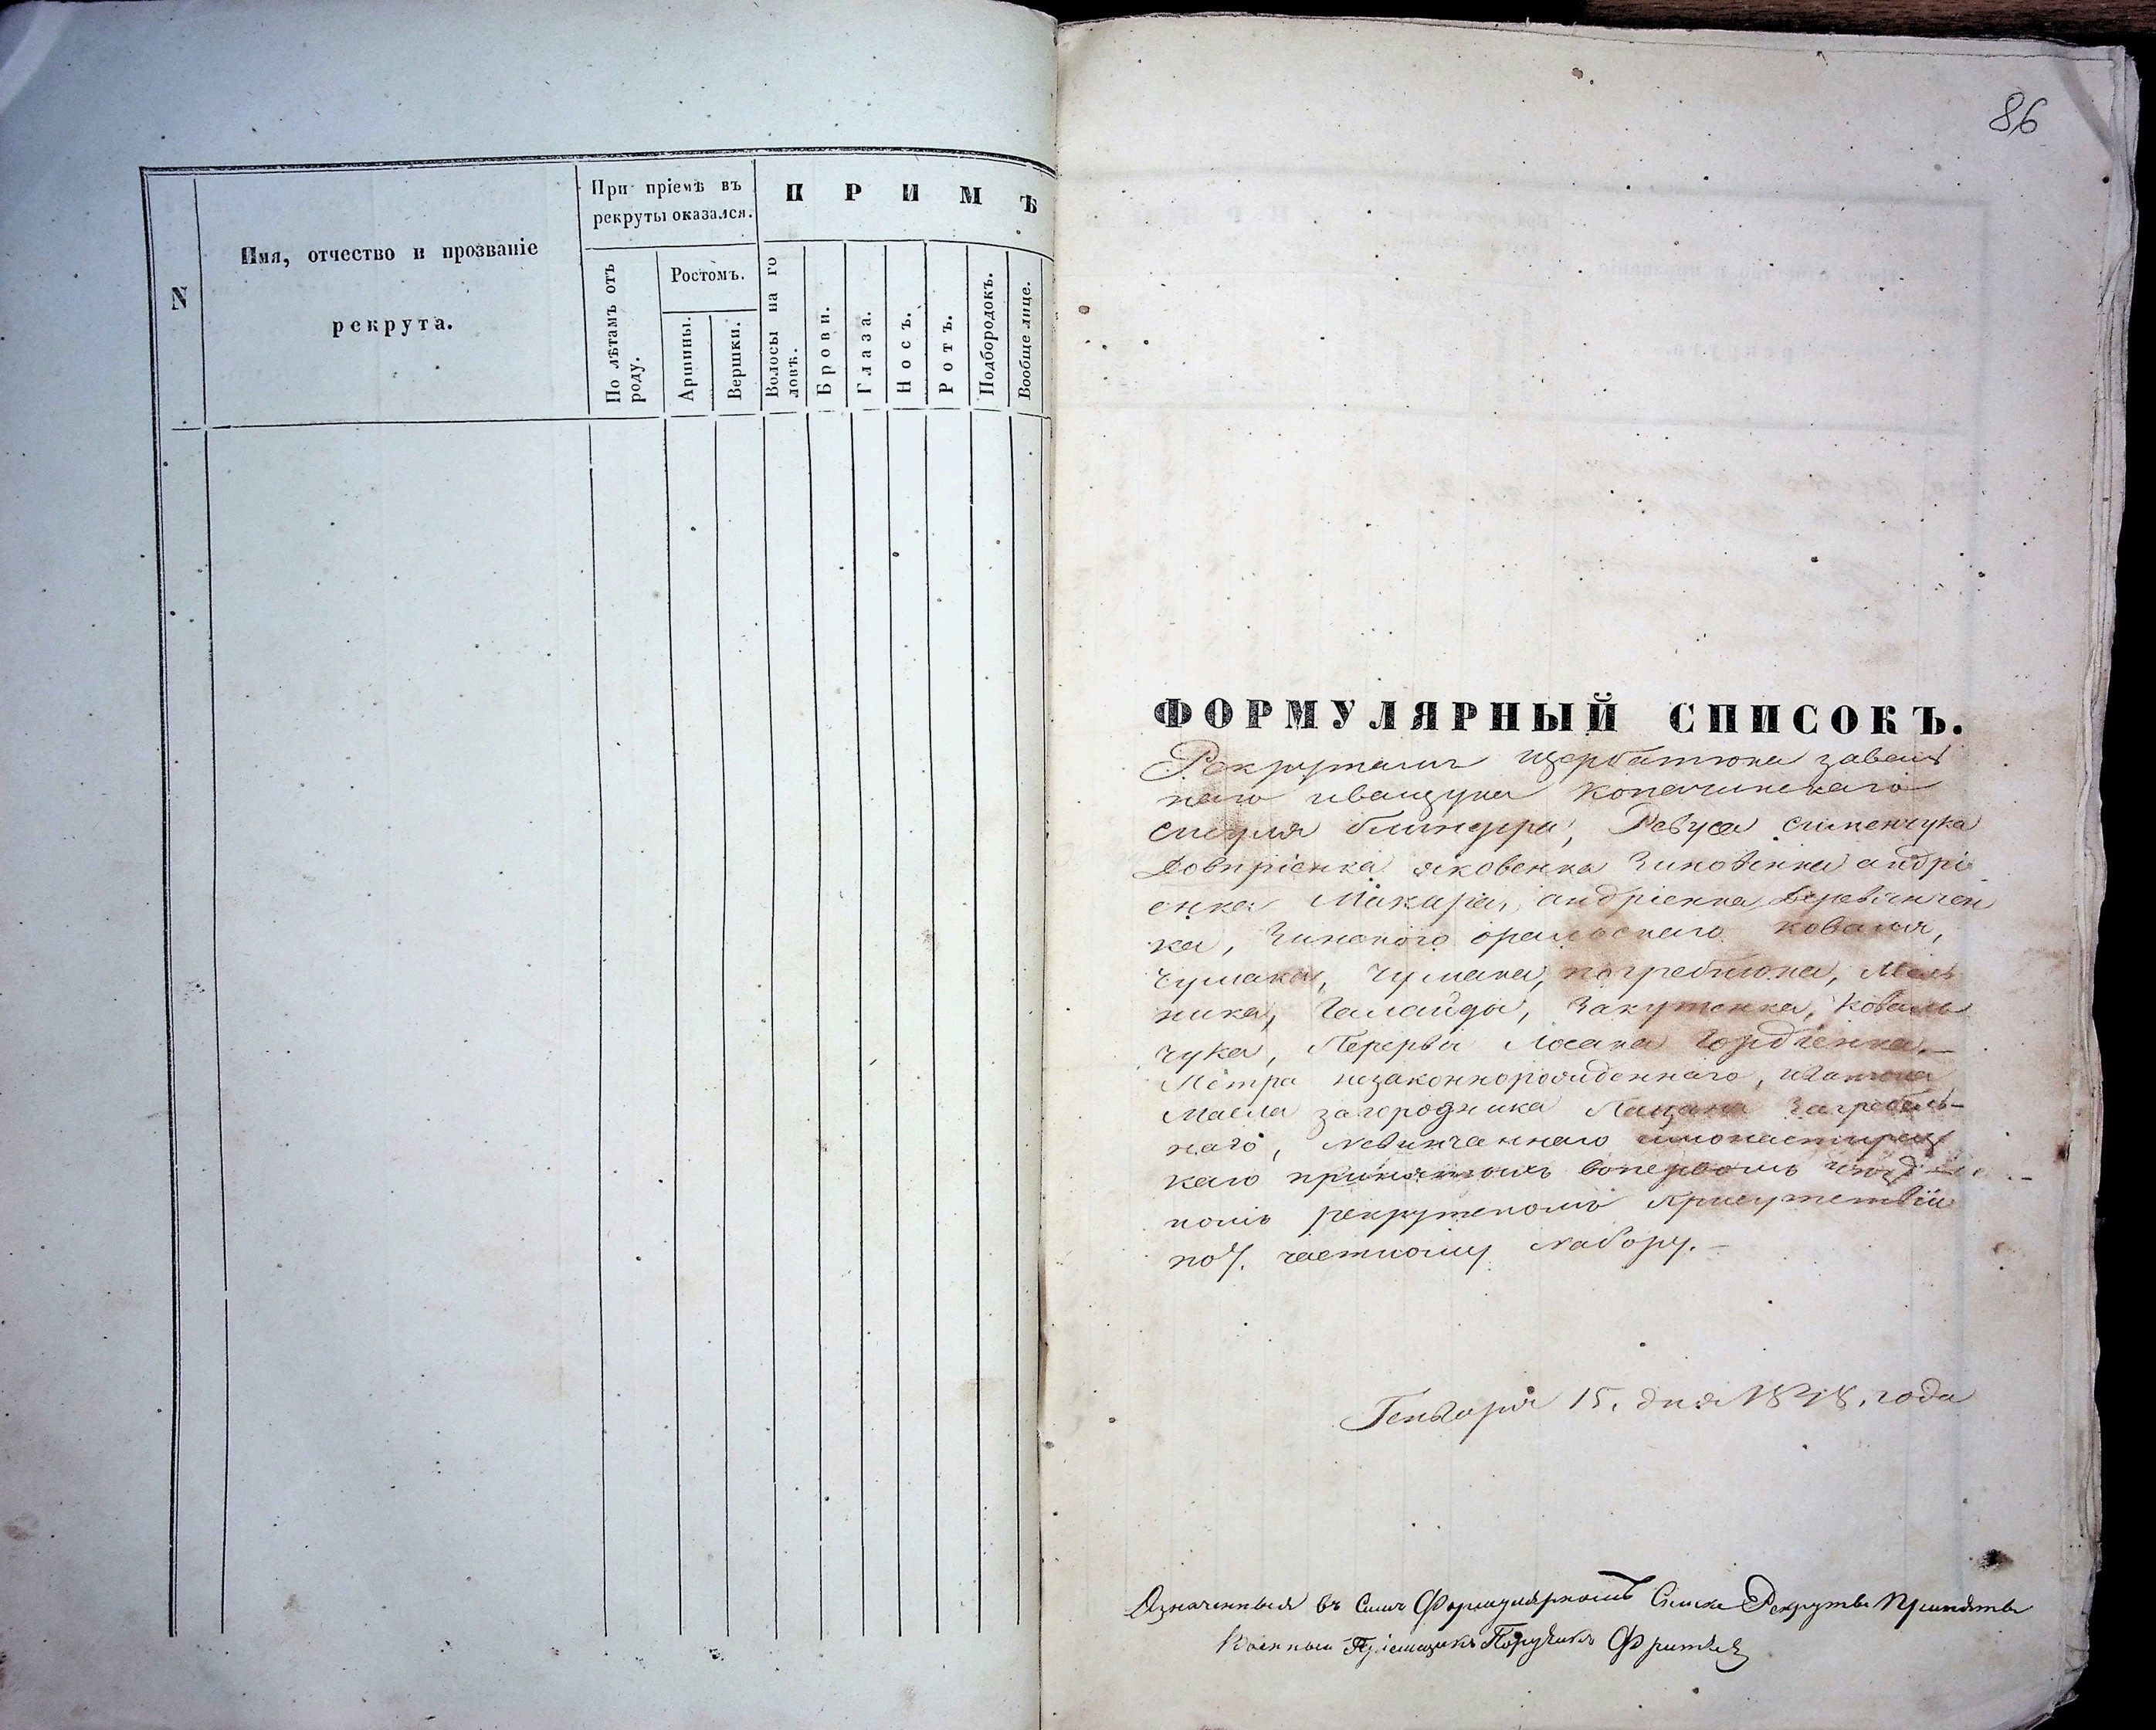 N
Имя, отчество и прозваніе
рекрута.
При пріемѣ въ
рекруты оказался.
По лѣтамъ отъ
роду.
Ростомъ.
Аршины.
Вершки.
П Р И М Ѣ
Волосы на го
ловѣ.
Брови.
Глаза.
Носъ.
Ротъ.
Подбородокъ.
Вообще лице.
86
ФОРМУЛЯРНЫЙ СПИСОКЪ.
Рекрутамъ Щербатюка
наго иващука копачинскаго
Ревуса сименчука
яковенка Зиновенка андрі
енка Макара, андріенка Деревянчен
ка, коваля,
Чумака, Чумака, погребнюка, Мель
ника, Галайды, Закутенка, Коваль
чука, Перервы Лосака Гордіенка.—
Петра незаконнорожденнаго,
Масла загородника Пацана Загребель-
наго, Невинчаннаго
каго принятыхъ воперьвомъ
номъ рекрутскомъ Присутствіи
по 7. частному Набору.—
Генваря 15. дня 1848. года
Означенныя въ семъ Формулярномъ Списке Рекруты Приняты
Военный Пріемщикъ Поручикъ